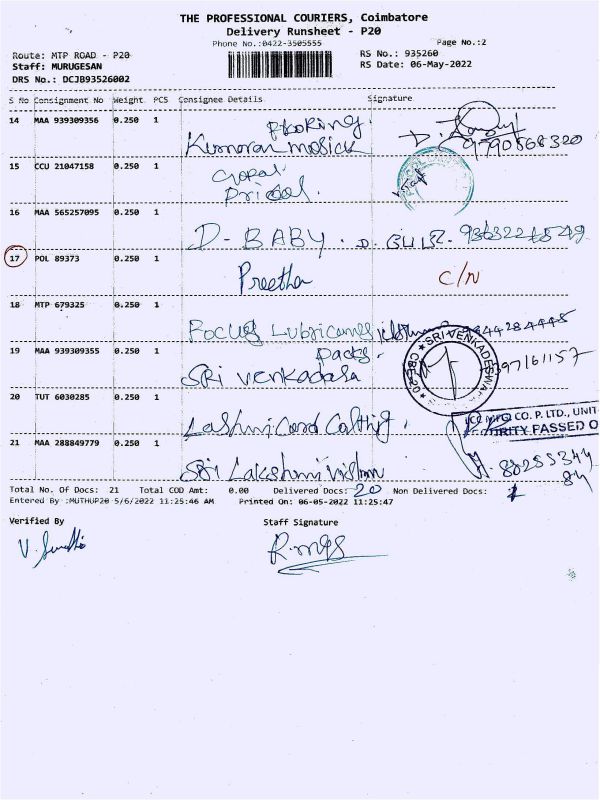 THE PROFESSIONAL COURIERS, Coimbatore
Delivery Runsheet - P20
Phone No.:0422-3505555 Page No.:2
Route: MTP ROAD - P20 RS No.: 935260
Staff: MURUGESAN RS Date: 06-May-2022
DRS No.: DCJB93526002
S No Consignment No Weight PCS Consignee Details Signature
14 MAA 939309356 0.250 1
9790868320
15 CCU 21047158 0.250 1 Gopal
16 MAA 565257095 0.250 1
D - BABY .
17 POL 89373 0.250 1
Preetha C/N
18 MTP 679325 0.250 1
Focus Lubricants
19 MAA 939309355 0.250 1 Packs.
SRi venkadasa
SRI VENKADESWARA
20 TUT 6030285 0.250 1
CO. P. LTD., UNIT
PASSED O
21 MAA 288849779 0.250 1
Sri Lakshmi
Total No. Of Docs: 21 Total COD Amt: 0.00 Delivered Docs: 20 Non Delivered Docs: 1
Entered By :MUTHUP20 5/6/2022 11:25:46 AM Printed On: 06-05-2022 11:25:47
Verified By Staff Signature